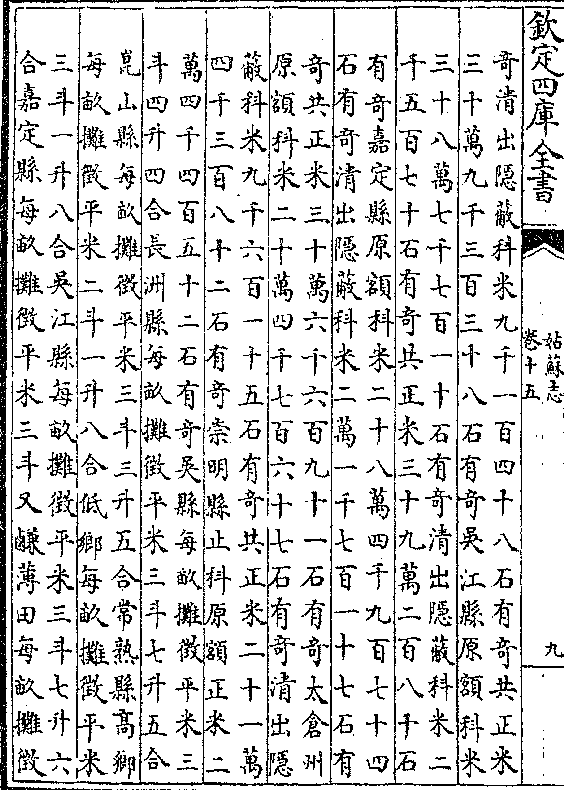 欽定四庫全書
姑蘇志
卷十五
九
奇清出隱蔽科米九千一百四十八石有奇共正米
三十萬九千三百三十八石有奇吳江縣原額科米
三十八萬七千七百一十石有奇清出隱蔽科米二
千五百七十石有奇共正米三十九萬二百八十石
有奇嘉定縣原額科米二十八萬四千九百七十四
石有奇清出隱蔽科米二萬一千七百一十七石有
奇共正米三十萬六千六百九十一石有奇太倉州
原額科米二十萬四千七百六十七石有奇清出隱
蔽科米九千六百一十五石有奇共正米二十一萬
四千三百八十二石有奇崇明縣止科原額正米二
萬四千四百五十二石有奇吳縣每畝攤徵平米三
斗四升四合長洲縣每畝攤徵平米三斗七升五合
崑山縣每畝攤徵平米三斗三升五合常熟縣高鄉
每畝攤徵平米二斗一升八合低鄉每畝攤徵平米
三斗一升八合吳江縣每畝攤徵平米三斗七升六
合嘉定縣每畝攤徵平米三斗又鹻薄田每畝攤徵